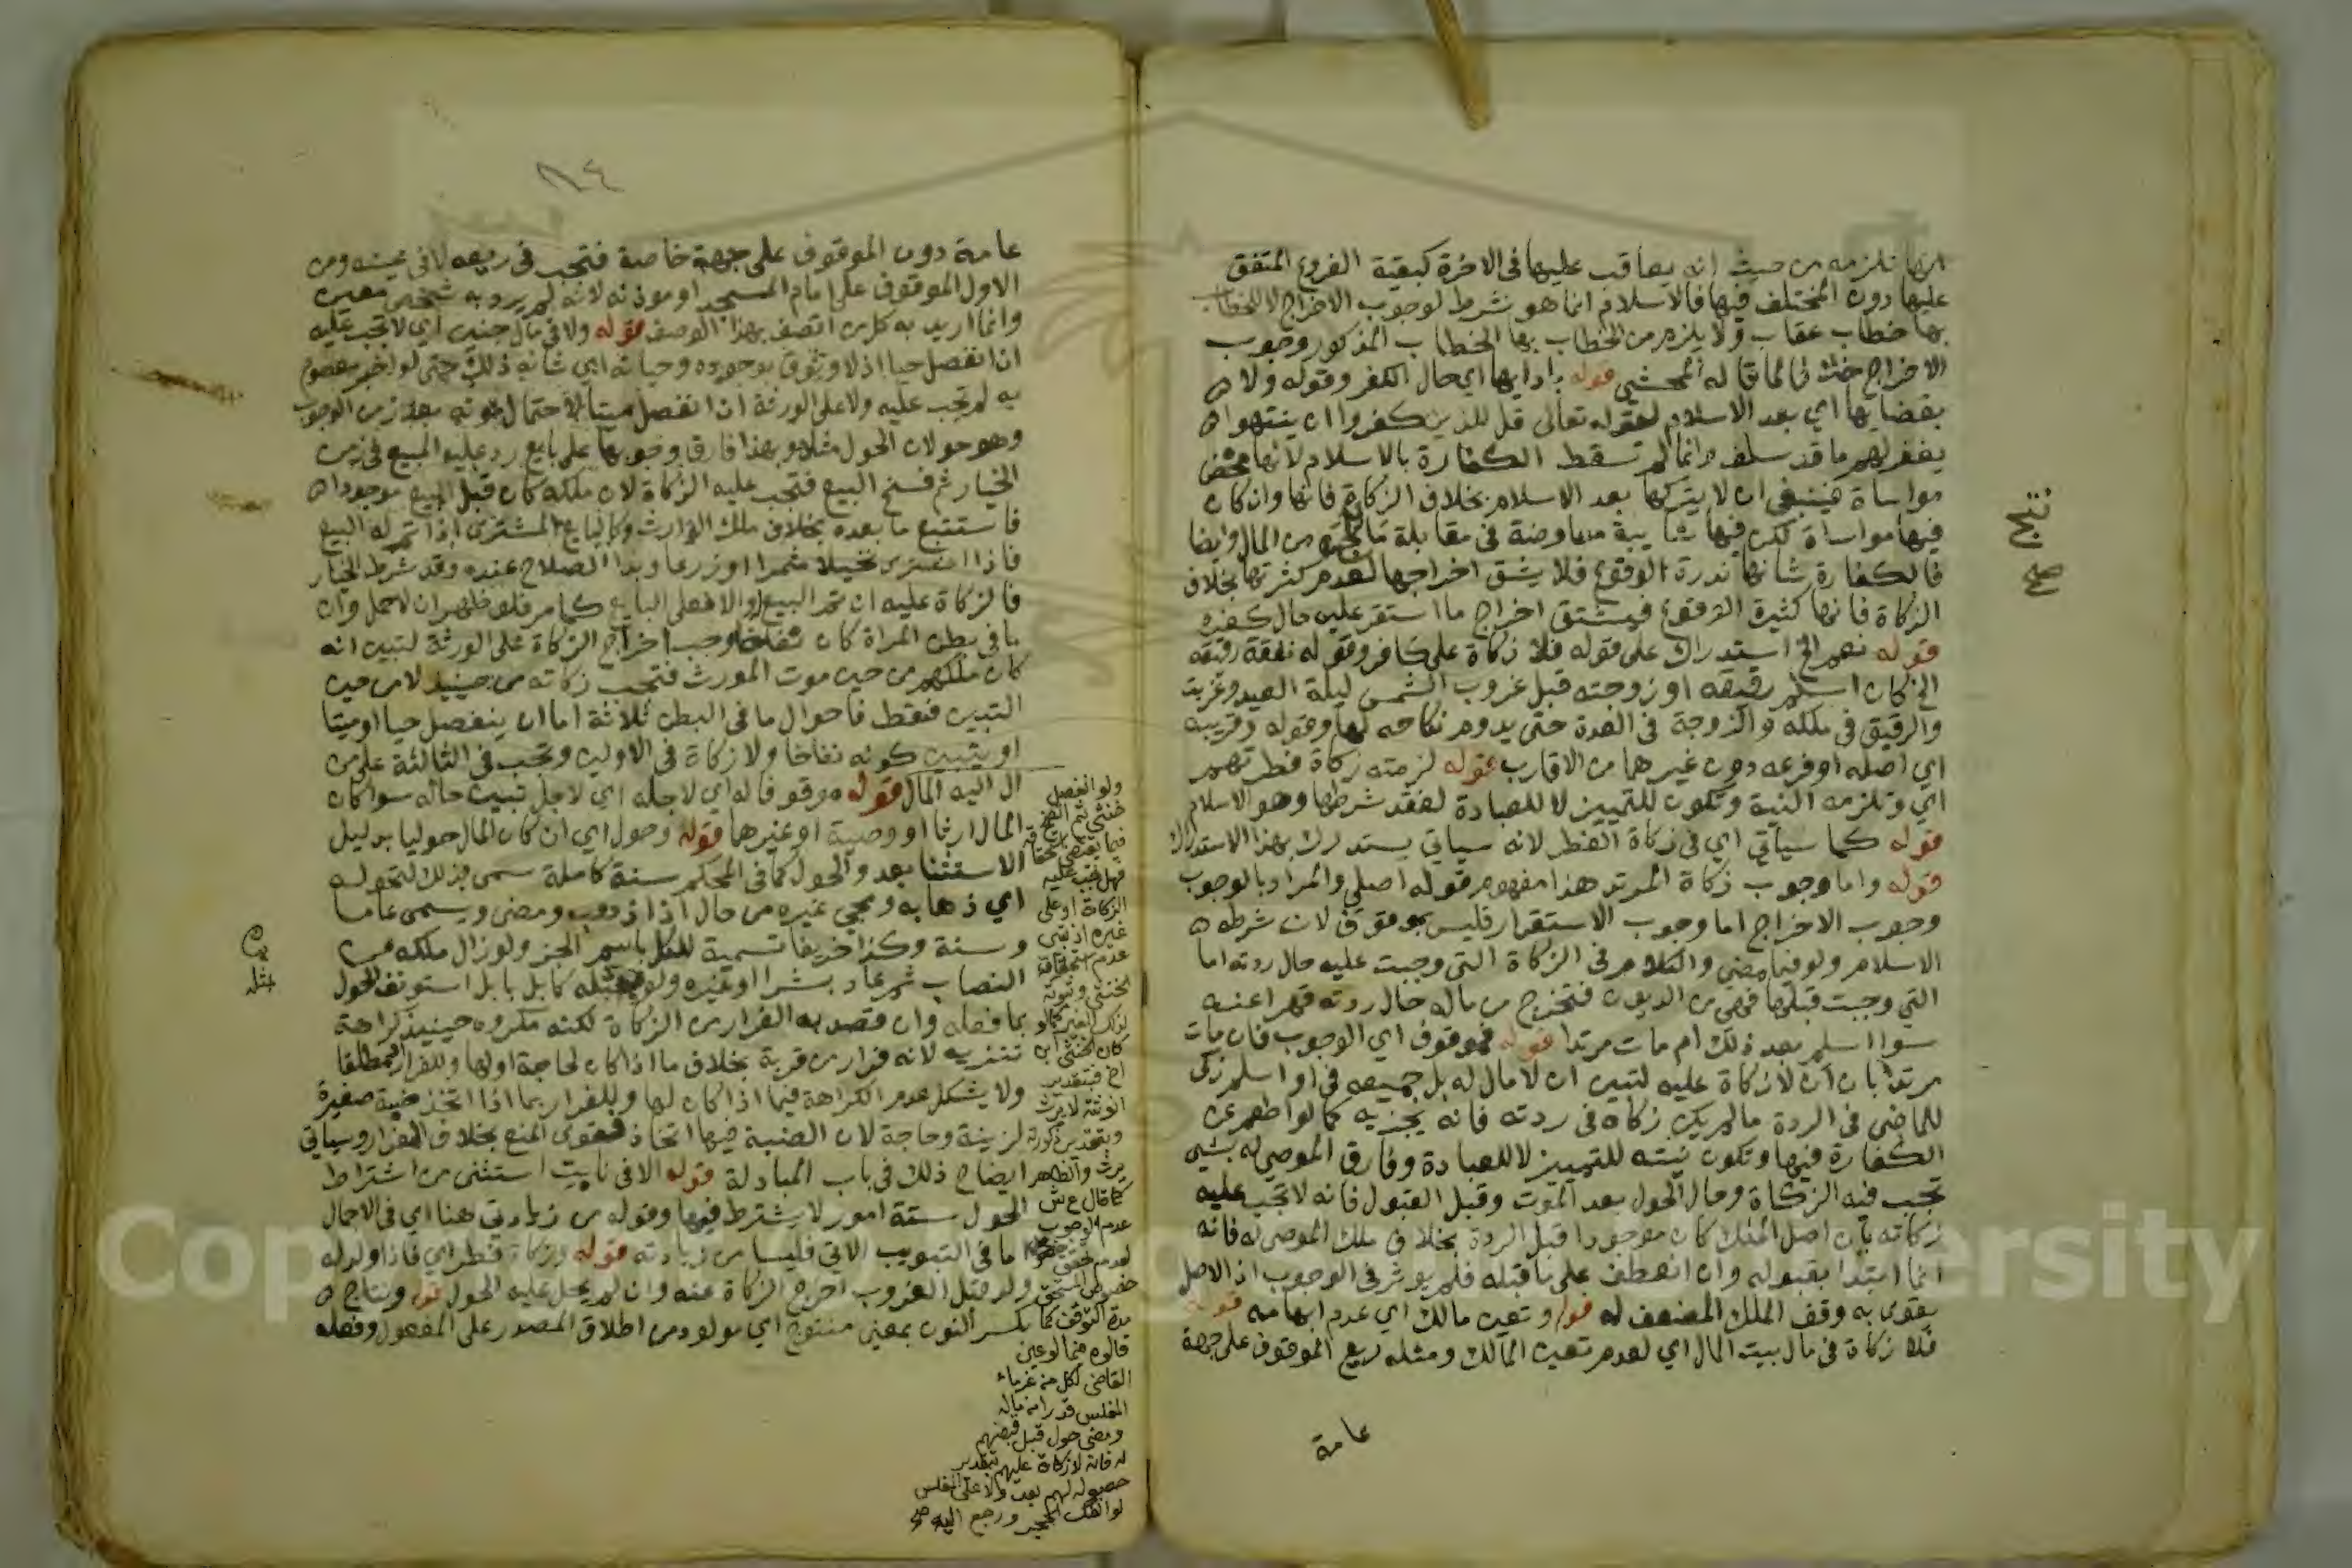 انها تلزمه من حيث انه يعاقب عليها فى الاخرة كبقية الفروع المتفق
عليها دون المختلف فيها فالاسلام انما هو شرط لوجوب الاخراج لا للخطاب
بها خطاب عقاب ولا يلزم من الخطاب بها الخطاب المذكور وجوب
الاخراج لما قاله المحشي قوله بادايها اي حال الكفر وقوله ولا
بقضايها اي بعد الاسلام لقوله تعالى قل للذين كفروا ان ينتهوا
يغفر لهم ما قد سلف وانما لم تسقط الكفارة بالاسلام لانها محض
مواساة فينبغي ان لا يتركها بعد الاسلام بخلاف الزكاة فانها وان كان
فيها مواساة لكن فيها شايبة معاوضة فى مقابلة من المال وايضا
فالكفارة شانها ندرة الوقوع فلا يشق اخراجها لعدم كثرتها بخلاف
الزكاة فانها كثيرة الوقوع فيشق اخراج ما استقر عليه حال كفره
قوله نعم الخ استدراك على قوله فلا زكاة على كافر وقوله نفقة رقيقه
الخ كان اسلم رقيقه او زوجته قبل غروب الشمس ليلة العيد وغربت
والرقيق فى ملكه والزوجة فى العدة حتى يدوم نكاحه لها وقوله وقريبه
اي اصله او فرعه دون غيرهما من الاقارب قوله لزمته زكاة فطرتهم
اي وتلزمه النية وتكون للتمييز لا للعبادة لفقد شرطها وهو الاسلام
قوله كما سياتي اي فى زكاة الفطر لانه سياتي يستدرك بهذا الاستدراك
قوله واما وجوب زكاة المرتد هذا مفهوم قوله اصلي والمراد بالوجوب
وجوب الاخراج اما وجوب الاستقرار فليس بموقوف لان شرطه
الاسلام ولو فيما مضى والكلام فى الزكاة التي وجبت عليه حال ردته اما
التي وجبت قبلها فهي من الديون فتخرج من ماله حال ردته قهرا عنه
سوا اسلم بعد ذلك ام مات مرتدا قوله فموقوف اي الوجوب فان مات
مرتدا بان ان لا زكاة عليه لتبين ان لا مال له بل جميعه فى او اسلم زكى
للماضي فى الردة ما لم يكن زكاه فى ردته فانه يجزيه كما لو اطعم عن
الكفارة فيها وتكون نيته للتمييز لا للعبادة وفارق الموصى له بشي
تجب فيه الزكاة وحال الحول بعد الموت وقبل القبول فانه لا تجب عليه
زكاته بان اصل الملك كان موجودا قبل الردة بخلاف ملك الموصى له فانه
انما ابتدا بقبوله وان انعطف على ما قبله فلم يوثر فى الوجوب اذ الاصل
يقوى به وقف الملك المضعف له قوله وتعين مالك اي عدم ابهامه قوله
فلا زكاة فى مال بيت المال اي لعدم تعين المالك ومثله ريع الموقوف على جهة
عامة
٨٤
عامة دون الموقوف على جهة خاصة فتجب فى ريعه لا فى عينه ومن
الاول الموقوف على امام المسجد او موذنه لانه لم يرد به شخص معين
وانما اريد به كل من اتصف بهذا الوصف قوله ولا فى مال جنين اي لا تجب عليه
ان انفصل حيا اذ لا وثوق بوجوده وحياته اي شانه ذلك حتى لو اخبر معصوم
به لم تجب عليه ولا على الورثة ان انفصل ميتا لاحتمال موته بعد زمن الوجوب
وهو حولان الحول مثلا وبهذا فارق وجوبها على بايع رد عليه المبيع فى زمن
الخيار ثم فسخ البيع فتجب عليه الزكاة لان ملكه كان قبل البيع موجودا
فاستتبع ما بعده بخلاف ملك الوارث وكالبايع المشتري اذا تم له البيع
فاذا اشترى نخيلا مثمرا او زرعا وبدا الصلاح عنده وقد شرط الخيار
فالزكاة عليه ان تم البيع والا فعلى البايع كما مر فلو ظهر ان لا حمل وان
ما فى بطن المراة كان نفاخا وجب اخراج الزكاة على الورثة لتبين انه
كان ملكهم من حين موت المورث فتجب زكاته من حينيذ لا من حين
التبين فقط فاحوال ما فى البطن ثلاثة اما ان ينفصل حيا او ميتا
او يتبين كونه نفاخا ولا زكاة فى الاولين وتجب فى الثالثة على من
ال اليه المال قوله موقوفا له اي لاجله اي لاجل تبين حاله سوا كان
المال ارثا او وصية او غيرها قوله وحول اي ان كان المال حوليا بدليل
الاستثنا بعد والحول كما فى المحكم سنة كاملة سمى بذلك لتحوله
اي ذهابه ومجي غيره من حال اذا ذهب ومضى ويسمى عاما
وسنة وكذا خريفا تسمية للكل باسم الجزء ولو زال ملكه عن
النصاب ثم عاد بشرا او غيره ولو بمثله كابل بابل استونف الحول
بما فعله وان قصد به الفرار من الزكاة لكنه مكروه حينيذ كراهة
تنزيه لانه فرار من قربة بخلاف ما اذا كان لحاجة او لها وللفرار او مطلقا
ولا يشكل عدم الكراهة فيما اذا كان لها وللفرار بما اذا اتخذ ضبة صغيرة
لزينة وحاجة لان الضبة فيها اتخاذ فقوى المنع بخلاف الفرار وسياتي
ايضاح ذلك فى باب المبادلة قوله الا فى نابت استثنى من اشتراط
الحول ستة امور لا يشترط فيها وقوله من زيادتي هنا اي فى الاجمال
اما فى التبويب الاتي فليسا من زيادته قوله وزكاة فطر اي فاذا ولد له
ولد قبل الغروب اخرج الزكاة عنه وان لم يحل عليه الحول قوله ونتاج
بكسر النون بمعنى منتوج اي مولود من اطلاق المصدر على المفعول وفعله
ولو انفصل
خنثى ثم
فهل تجب عليه
الزكاة او على
غيره اذ تبين
عدم استحقاق
الخنثى وثبوته
لذلك الغير كما لو
كان الخنثى ابن
اخ فبتقدير
الانوثة لا يرث
وبتقدير الذكورة
يرث والظاهر
كما قال ع ش
عدم الوجوب
لعدم تحقق
خصوص المستحق
مدة التوقف كما
قالوه فيما لو عين
القاضي لكل من غرماء
المفلس قدرا من ماله
ومضى حول قبل قبضهم
له فانه لا زكاة عليهم بتقدير
حصوله لهم بعد ولا على المفلس
لو انفك الحجر ورجع اليه صح